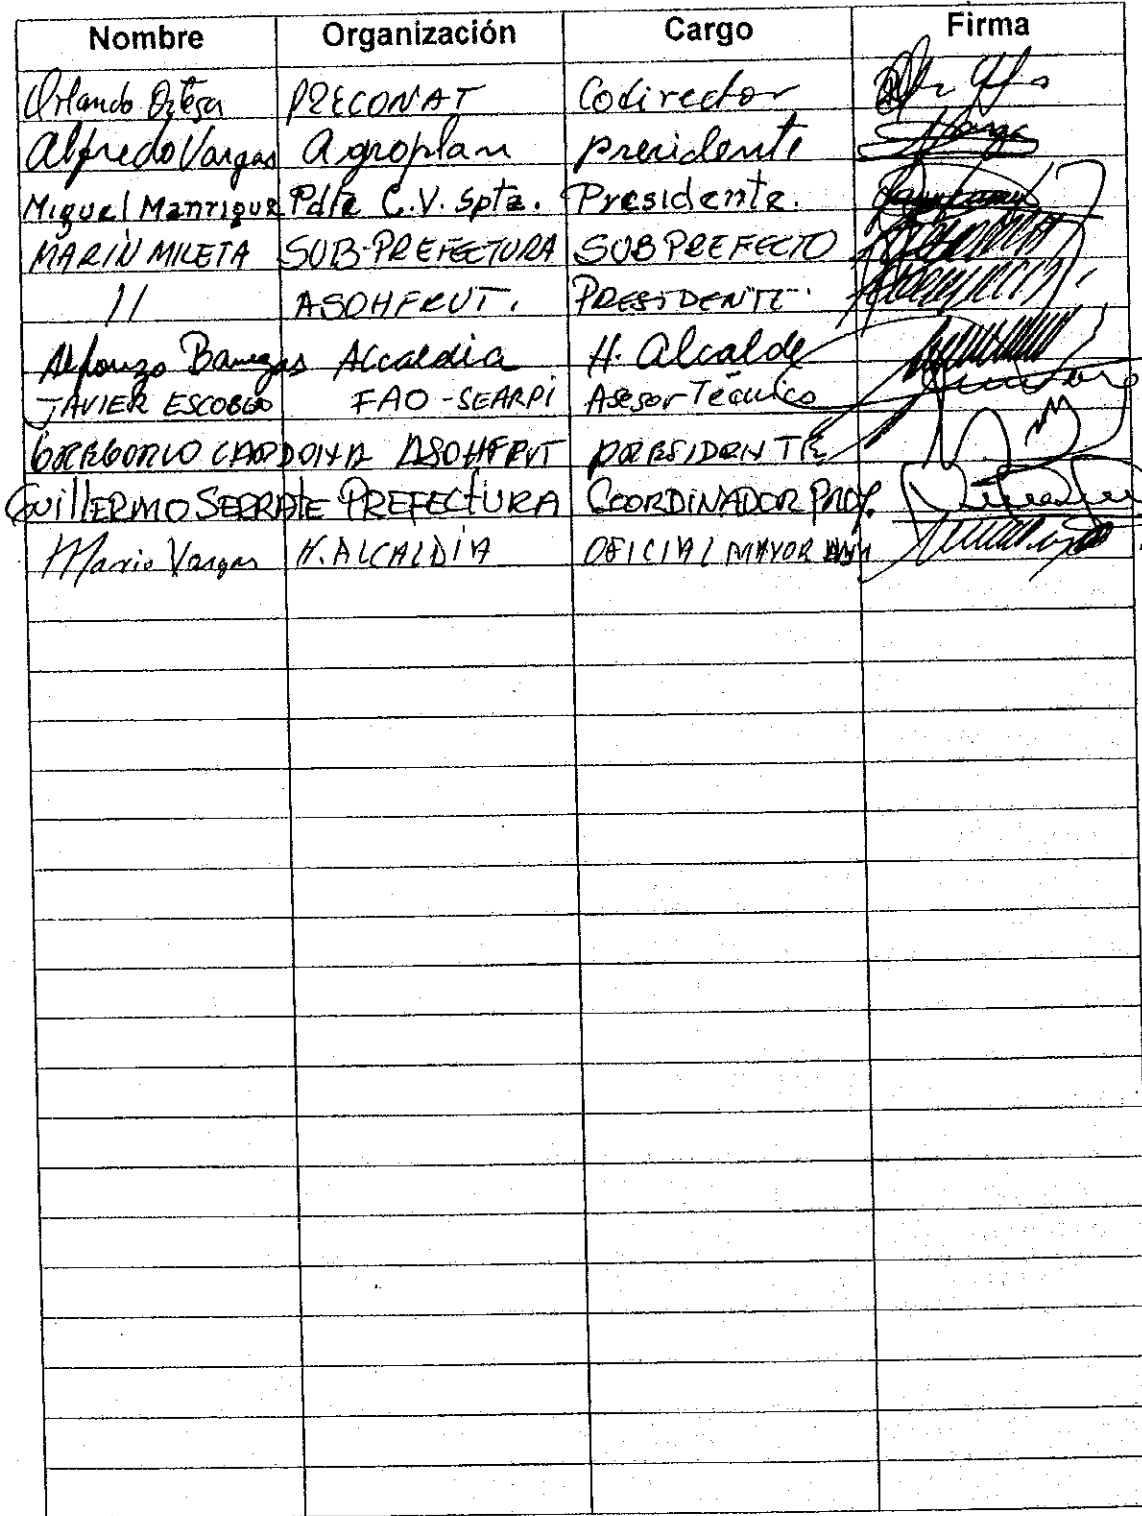 Nombre Organización Cargo Firma
Orlando Ortega PRECONAT Codirector
Alfredo Vargas Agroplan presidente
Miguel Manrique Pdte C.V. Spta. Presidente.
MARIN MILETA SUB-PREFECTURA SUBPREFECTO
11 ASOHFRUT. PRESIDENTE.
Alfonzo Banegas Alcaldia H. Alcalde
JAVIER ESCOBEDO FAO-SEARPI Asesor Técnico
GREGORIO CARDONA ASOHFRUT PRESIDENTE
GUILLERMO SERRATE PREFECTURA COORDINADOR PROY.
Mario Vargas H. ALCALDIA OFICIAL MAYOR